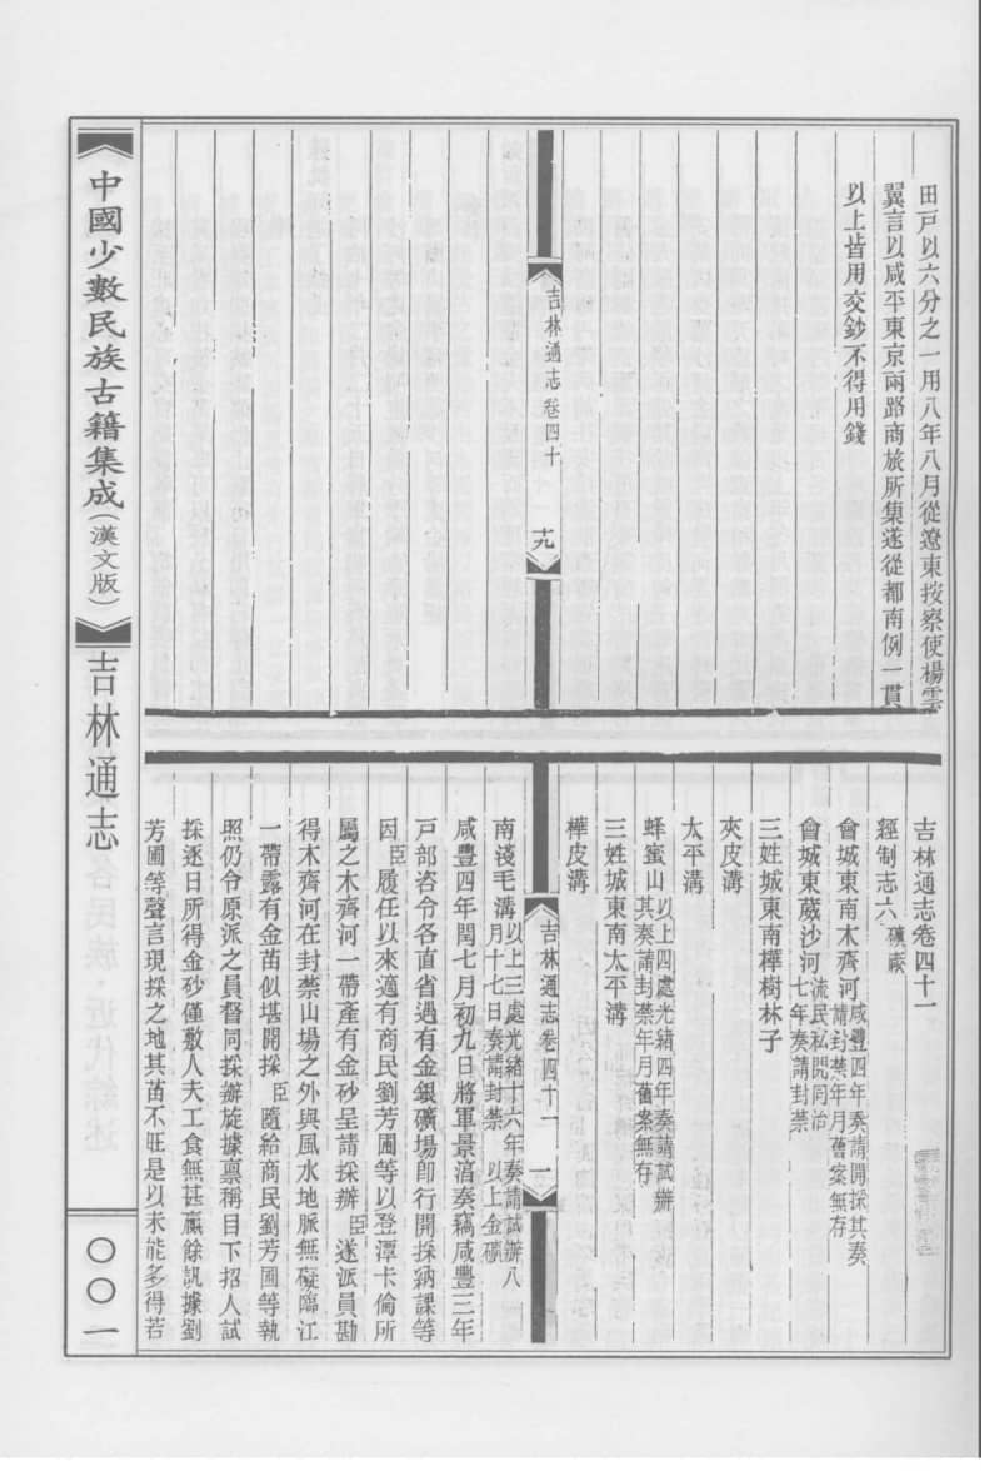 田戸以六分之一用八年八月從遼東按察使楊雲
翼言以咸平東京兩路商旅所集遂從都南例一貫
以上皆用交鈔不得用錢
吉林通志卷四十
十九
吉林通志卷四十一
經制志六 礦廠
會城東南木齊河 咸豐四年奏請開採其奏請封禁年月舊案無存
會城東葳沙河 流民私開同治七年奏請封禁
三姓城東南樺樹林子
夾皮溝
太平溝
蜂蜜山 以上四處光緒四年奏請試辦其奏請封禁年月舊案無存
三姓城東南太平溝
樺皮溝
吉林通志卷四十一
一
南淺毛溝 以上三處光緒十六年奏請試辦八月十七日奏請封禁 以上金礦
咸豐四年閏七月初九日將軍景淳奏竊咸豐三年
戸部咨令各直省過有金銀礦場卽行開採納課等
因臣履任以來適有商民劉芳圃等以登潭卡倫所
屬之木齊河一帶產有金砂呈請採辦臣遂派員勘
得木齊河在封禁山場之外與風水地脈無礙臨江
一帶露有金苗似堪開採臣隨給商民劉芳圃等執
照仍令原派之員督同採辦旋據稟稱目下招人試
採逐日所得金砂僅敷人夫工食無甚贏餘訊據劉
芳圃等聲言現採之地其苗不旺是以未能多得若
《中國少數民族古籍集成（漢文版）》
吉林通志
〇〇一